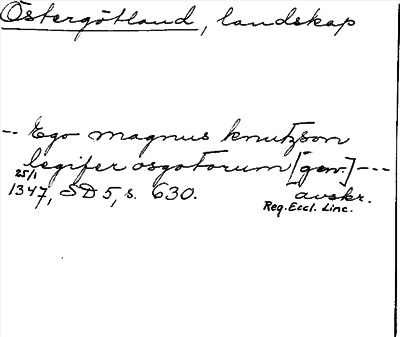 Östergötland, landskap
-- Ego magnus knutzson
legifer osgotorum [gen.] ---
25/1
1347, SD 5, s. 630. avskr.
Reg. Eccl. Linc.